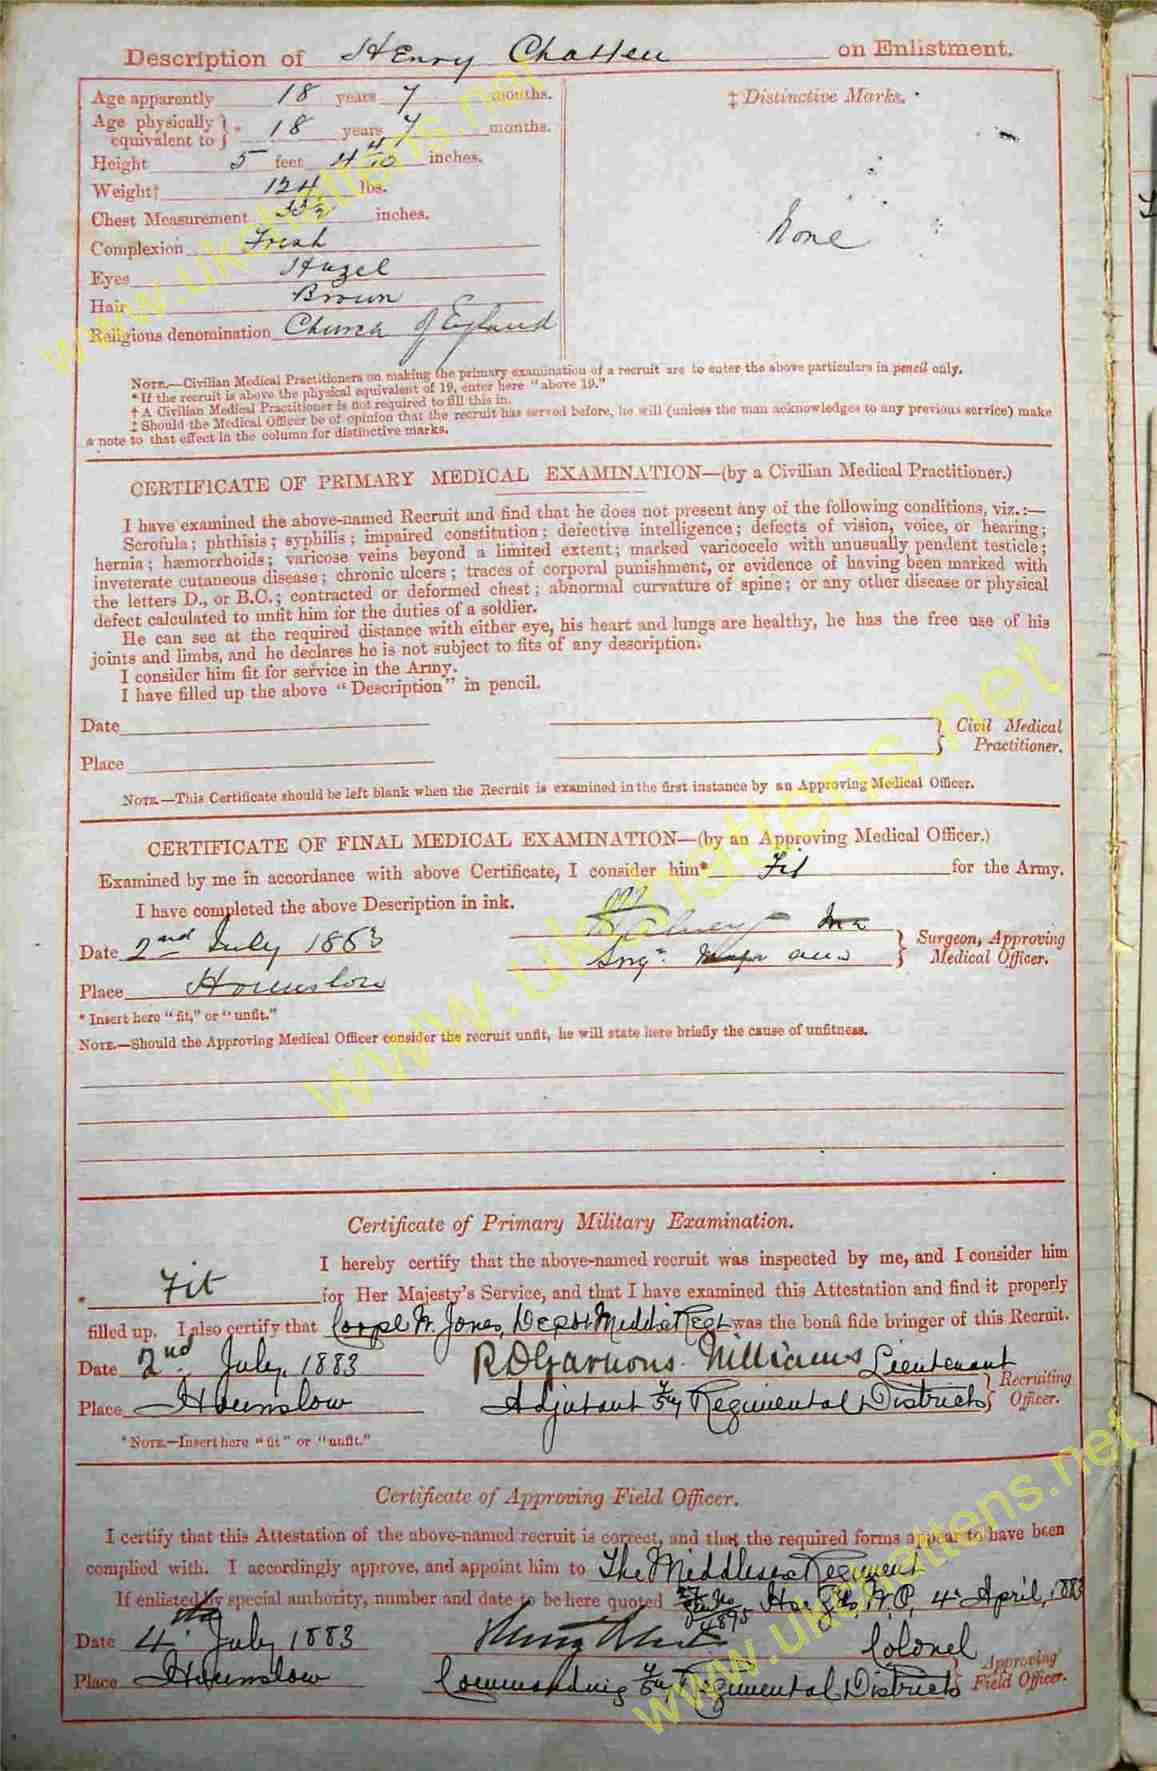 Description of Henry Chatten on Enlistment.
Age apparently 18 years 7 months.
Age physically equivalent to } * 18 years 7 months.
Height 5 feet 4 4/10 inches.
Weight† 124 lbs.
Chest Measurement inches.
Complexion Fresh
Eyes Hazel
Hair Brown
Religious denomination Church of England
‡ Distinctive Marks.
None
NOTE.—Civilian Medical Practitioners on making the primary examination of a recruit are to enter the above particulars in pencil only.
* If the recruit is above the physical equivalent of 19, enter here "above 19."
† A Civilian Medical Practitioner is not required to fill this in.
‡ Should the Medical Officer be of opinion that the recruit has served before, he will (unless the man acknowledges to any previous service) make
a note to that effect in the column for distinctive marks.
CERTIFICATE OF PRIMARY MEDICAL EXAMINATION—(by a Civilian Medical Practitioner.)
I have examined the above-named Recruit and find that he does not present any of the following conditions, viz.:—
Scrofula; phthisis; syphilis; impaired constitution; defective intelligence; defects of vision, voice, or hearing;
hernia; hæmorrhoids; varicose veins beyond a limited extent; marked varicocele with unusually pendent testicle;
inveterate cutaneous disease; chronic ulcers; traces of corporal punishment, or evidence of having been marked with
the letters D., or B.C.; contracted or deformed chest; abnormal curvature of spine; or any other disease or physical
defect calculated to unfit him for the duties of a soldier.
He can see at the required distance with either eye, his heart and lungs are healthy, he has the free use of his
joints and limbs, and he declares he is not subject to fits of any description.
I consider him fit for service in the Army.
I have filled up the above "Description" in pencil.
Date
Place
} Civil Medical Practitioner.
NOTE.—This Certificate should be left blank when the Recruit is examined in the first instance by an Approving Medical Officer.
CERTIFICATE OF FINAL MEDICAL EXAMINATION—(by an Approving Medical Officer.)
Examined by me in accordance with above Certificate, I consider him* Fit for the Army.
I have completed the above Description in ink.
Date 2nd July 1883
Place Hounslow
} Surgeon, Approving Medical Officer.
* Insert here "fit," or "unfit."
NOTE.—Should the Approving Medical Officer consider the recruit unfit, he will state here briefly the cause of unfitness.
Certificate of Primary Military Examination.
I hereby certify that the above-named recruit was inspected by me, and I consider him
* Fit for Her Majesty's Service, and that I have examined this Attestation and find it properly
filled up. I also certify that Corpl W. Jones, Depot Middx Regt was the bonâ fide bringer of this Recruit.
Date 2nd July, 1883 R D Garnons Williams Lieutenant
Place Hounslow Adjutant Regimental Districts } Recruiting Officer.
*NOTE—Insert here "fit" or "unfit."
Certificate of Approving Field Officer.
I certify that this Attestation of the above-named recruit is correct, and that the required forms appear to have been
complied with. I accordingly approve, and appoint him to The Middlesex Regiment
If enlisted by special authority, number and date to be here quoted 4895 4 April, 1883
Date 4th July, 1883 Colonel
Place Hounslow Commanding Regimental Districts } Approving Field Officer.
www.ukchattens.net
www.ukchattens.net
www.ukchattens.net